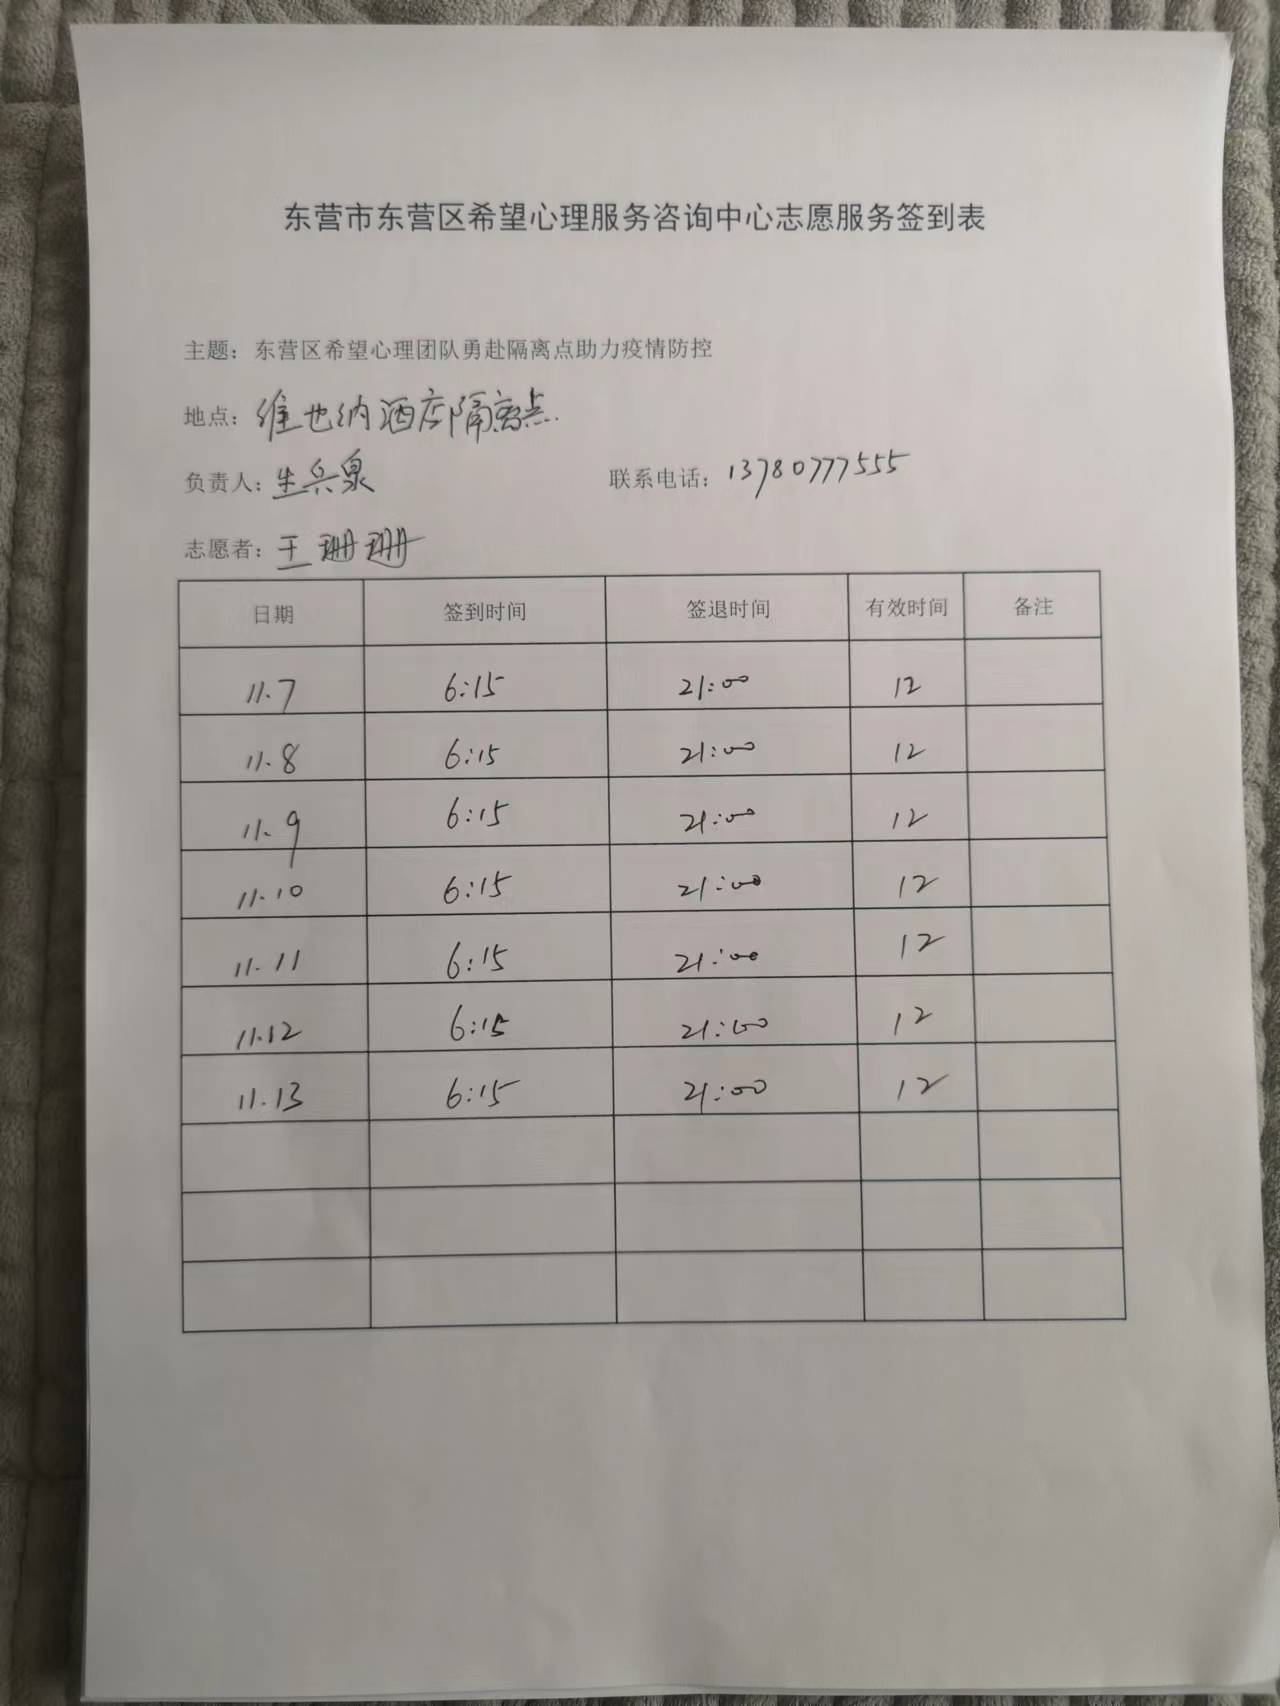 东营市东营区希望心理服务咨询中心志愿服务签到表
主题：东营区希望心理团队勇赴隔离点助力疫情防控
地点：维也纳酒店隔离点
负责人：生兵泉 联系电话：13780777555
志愿者：王珊珊
日期 签到时间 签退时间 有效时间 备注
11.7 6:15 21:00 12
11.8 6:15 21:00 12
11.9 6:15 21:00 12
11.10 6:15 21:00 12
11.11 6:15 21:00 12
11.12 6:15 21:00 12
11.13 6:15 21:00 12